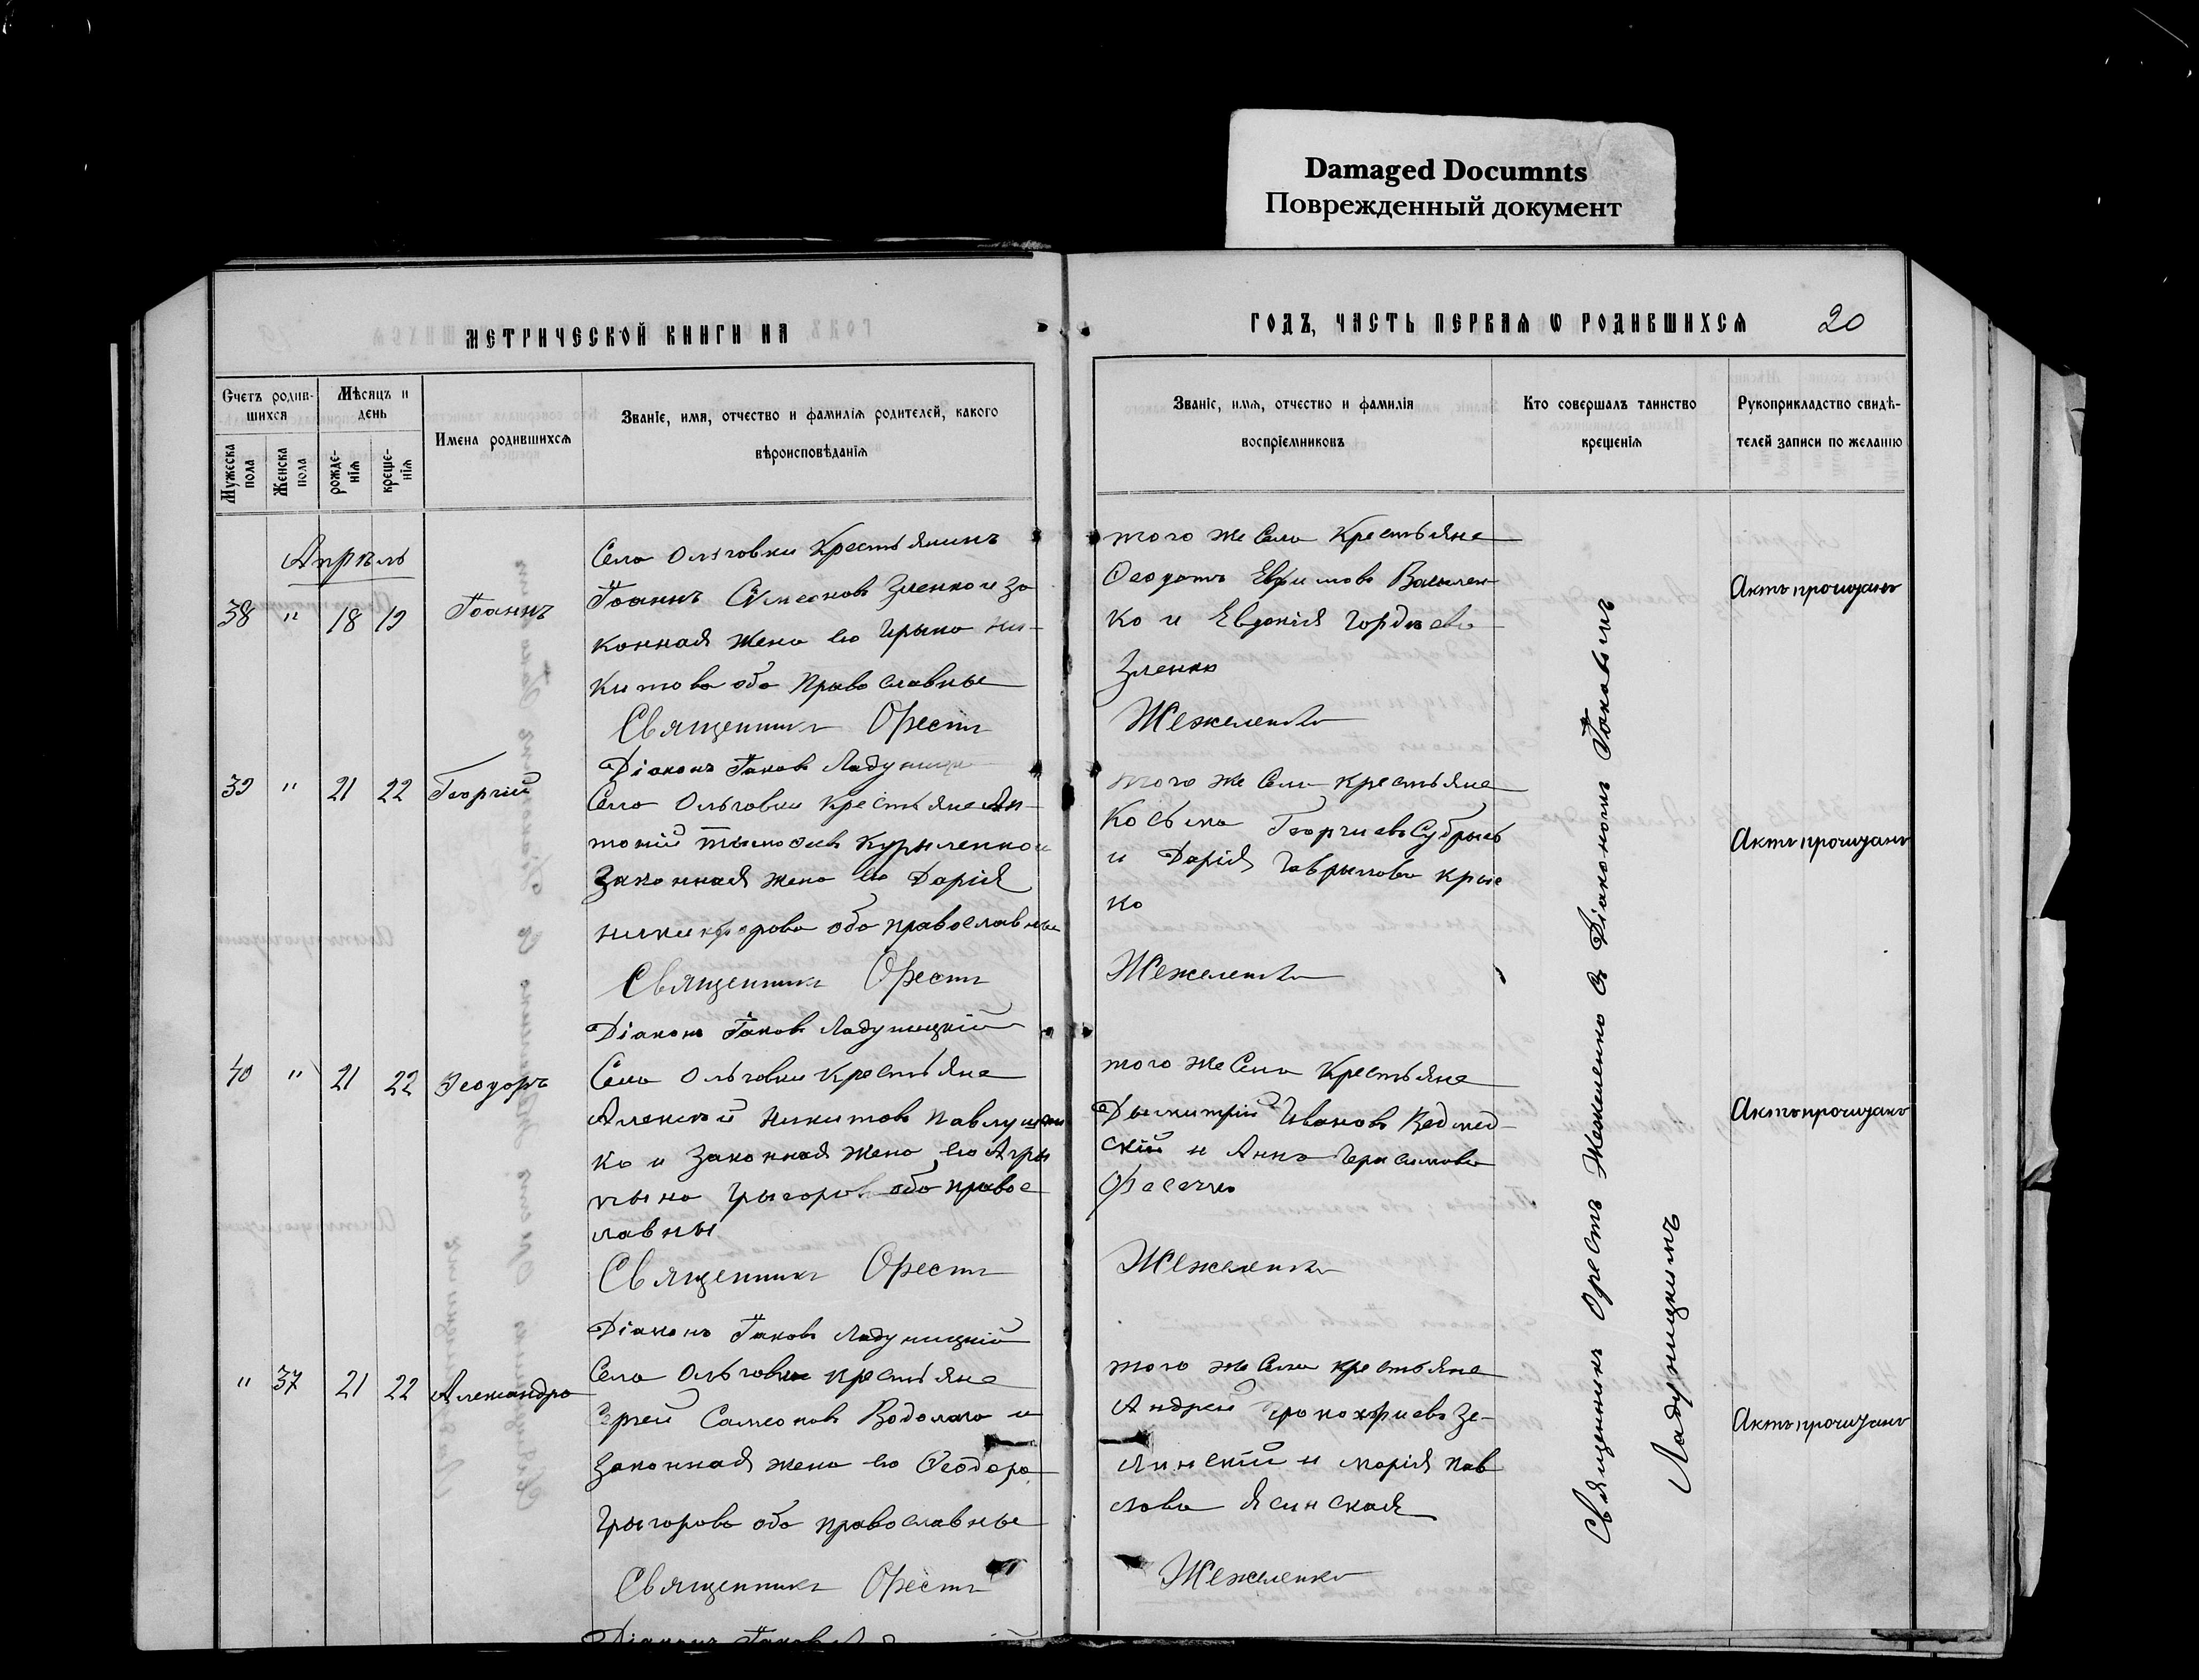 Damaged Documnts
Поврежденный документ
МЕТРИЧЕСКОЙ КНИГИ НА
ГОДЪ, ЧАСТЬ ПЕРВАЯ Ѡ РОДИВШИХСЯ
20
Счетъ родив-
шихся
Мужеска пола
Женска пола
Мѣсяцъ и
день
рожде-
нія
креще-
нія
Имена родившихся
Званіе, имя, отчество и фамилія родителей, какого
вѣроисповѣданія
Званіе, имя, отчество и фамилія
воспріемниковъ
Кто совершалъ таинство
крещенія
Рукоприкладство свидѣ-
телей записи по желанію
Апрѣль
38 " 18 19 Іоаннъ
Села Ольговки Крестьянинъ
Іоаннъ Симеоновъ Зленко и за
конная жена его Ирина Ни-
китова оба Православные
Священникъ Орестъ
Діаконъ Іаковъ Ладуницкій
того же Села Крестьяне
Феодотъ Евфимовъ Васылен-
ко и Евдокія Гордѣева
Зленко
Жежеленко
Актъ прочиданъ
39 " 21 22 Георгій
Села Ольговки Крестьяне Ан-
тоній Тымофеевъ Курыленко и
Законная жена его Дарія
Никифорова оба православные
Священникъ Орестъ
Діаконъ Іаковъ Ладуницкій
того же Села крестьяне
Косьма Георгиевъ
и Дарія Гаврылова
ко
Жежеленко
Актъ прочиданъ
40 " 21 22 Феодоръ
Села Ольговки Крестьяне
Алексѣй Никитовъ
ко и Законная жена его Агри
пына Грыгорова оба правос
лавны
Священникъ Орестъ
Діаконъ Іаковъ Ладуницкій
того же Села Крестьяне
Дымитрій Ивановъ Ведмед-
скій и Анна Герасимова
Жежеленко
Актъ прочиданъ
" 37 21 22 Александра
Села Ольговки крестьяне
Сергей Самсоновъ Водолага и
Законная жена его Феодора
Грыгорова оба православные
Священникъ Орестъ
Діаконъ Іаковъ
того же Села крестьяне
Андрей Прокофиевъ Зе-
линскій и Марія Пав
лова Ясинская
Жежеленко
Актъ прочиданъ
Священникъ Орестъ Жежеленко съ Діакономъ Іаковомъ
Ладуницкимъ